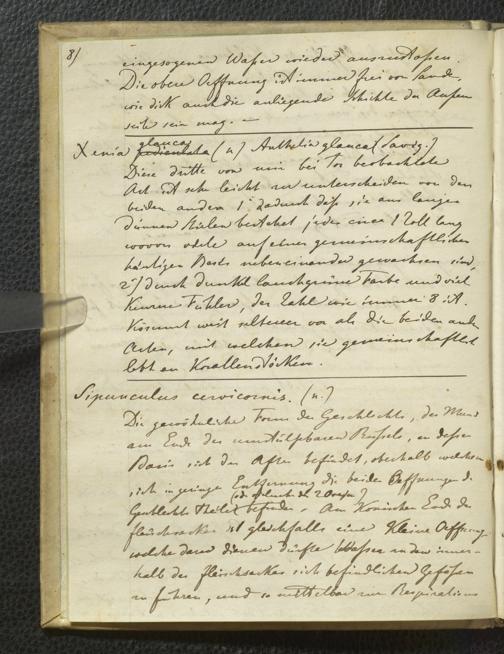 8/
eingesogenen Wassers wieder auszustossen.
Die obere Oeffnung ist immer frei von Sande,
wie dick auch die anliegende Schichte der Aussen
seite sein mag. —
Xenia glauca (n) Anthelia glauca (Savig.)
Diese dritte von mir bei Tor beobachtete
Art ist sehr leicht zu unterscheiden von den
beiden andern 1° dadurch dass sie aus langen
dünnen Stielen bestehet, jeder circa 1 Zoll lang
wovon viele auf einer gemeinschaftlichen
häutigen Basis nebeneinander gewachsen sind,
2°/ durch dunkel lauchgrüne Farbe und viel
kleinere Fühler, der Zahl wie immer 8 ist.
Kömmt weit seltener vor als die beiden andern
Arten, mit welchen sie gemeinschaftlich
lebt an Korallenstöcken.
Sipunculus cervicornis. (n.)
Die gewöhnliche Form des Geschlechts, der Mund
am Ende des umstülpbaren Rüssels, an dessen
Basis sich der After befindet, oberhalb welchem
sich in geringer Entfernung die beiden Oeffnungen d.
(ob vielleicht die 2 Ovarien?)
Geschlechts Theile befinden. Am konischen Ende des
Fleischsackes ist gleichfalls eine kleine Oeffnung
welche dazu dienen dürfte Wasser zu den inner-
halb des Fleischsackes sich befindlichen Gefässen
zu führen, und so mittelbar zur Respirations